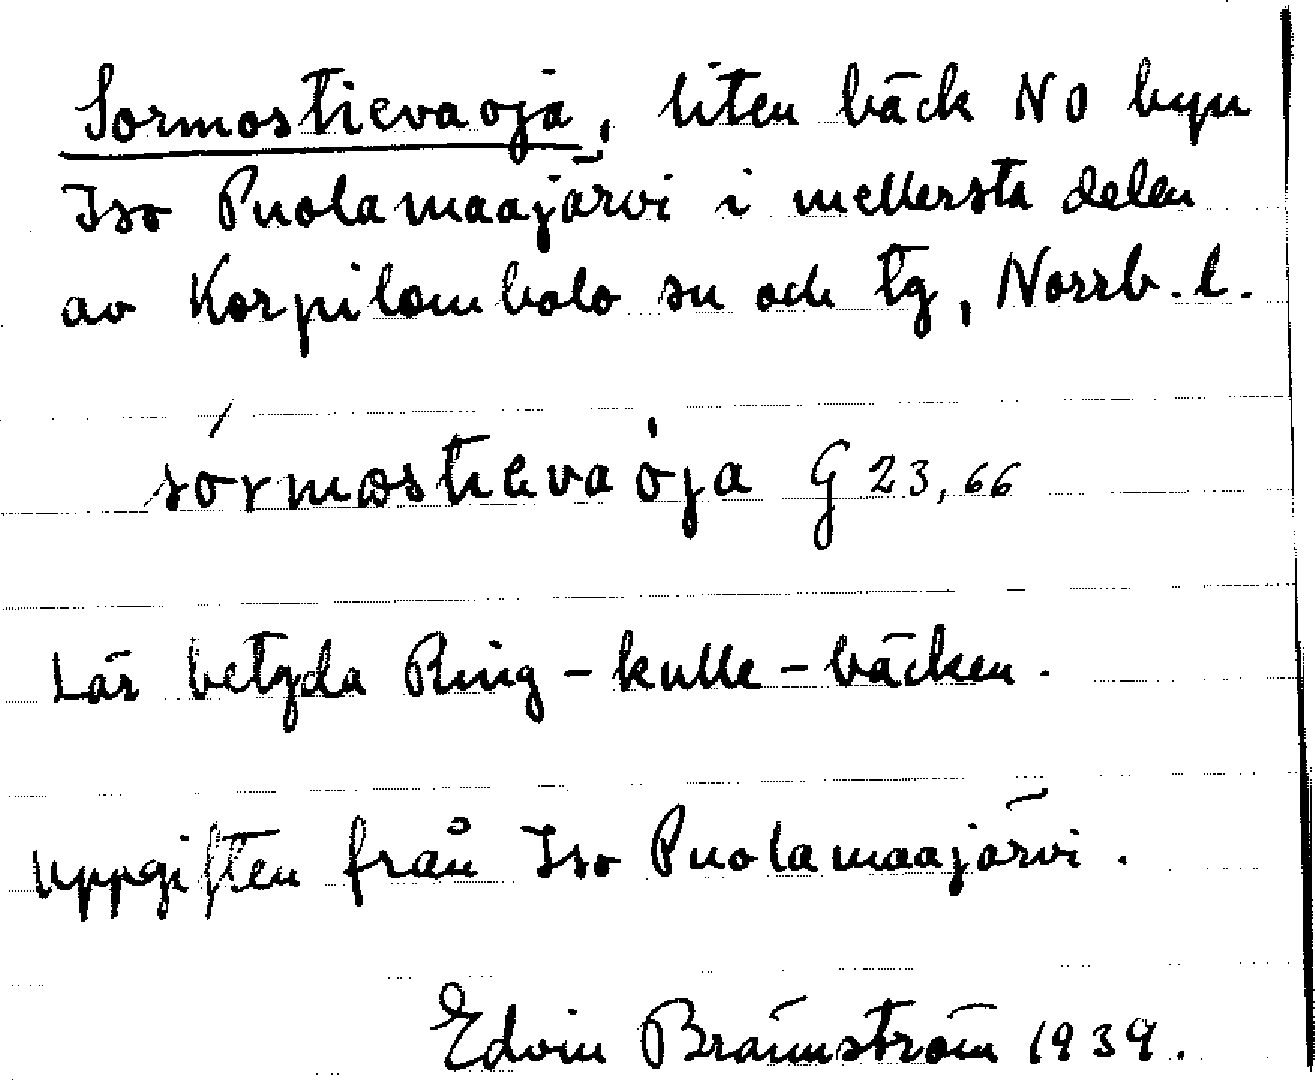 Sormostievaoja, liten bäck NO byn
Iso Puolamaajärvi i mellersta delen
av Korpilombolo sn och tg, Norrb. l.
sórmostievaòja G 23,66
Lär betyda Ring-kulle-bäcken.
Uppgiften från Iso Puolamaajärvi.
Edvin Brännström 1939.